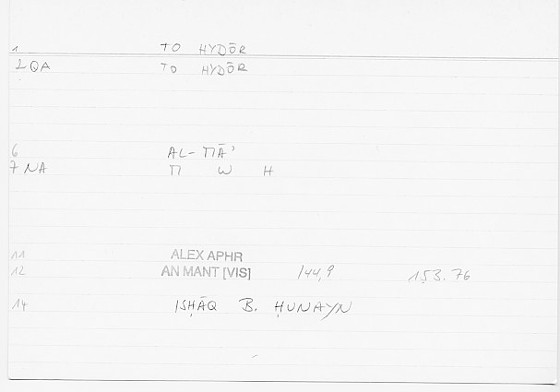 1 TO HYDŌR
2 QA TO HYDŌR
6 AL-MĀʾ
7 NA M W H
11 ALEX APHR
12 AN MANT [VIS] 144,9 153.76
14 ISḤĀQ B. ḤUNAYN